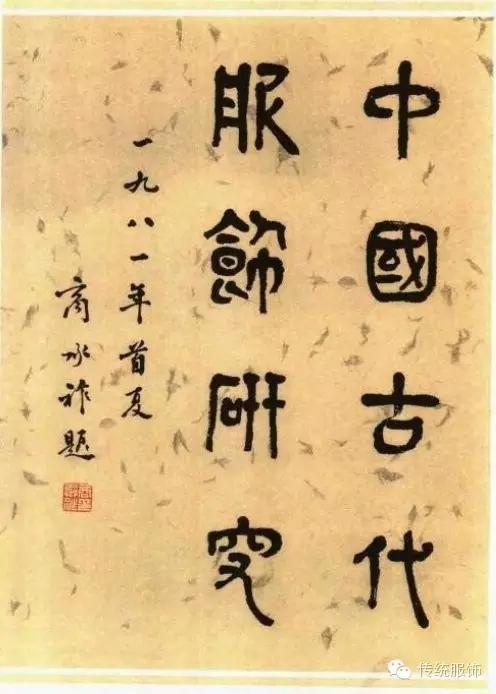 中國古代
服飾研究
一九八一年首夏
商承祚題
传统服饰